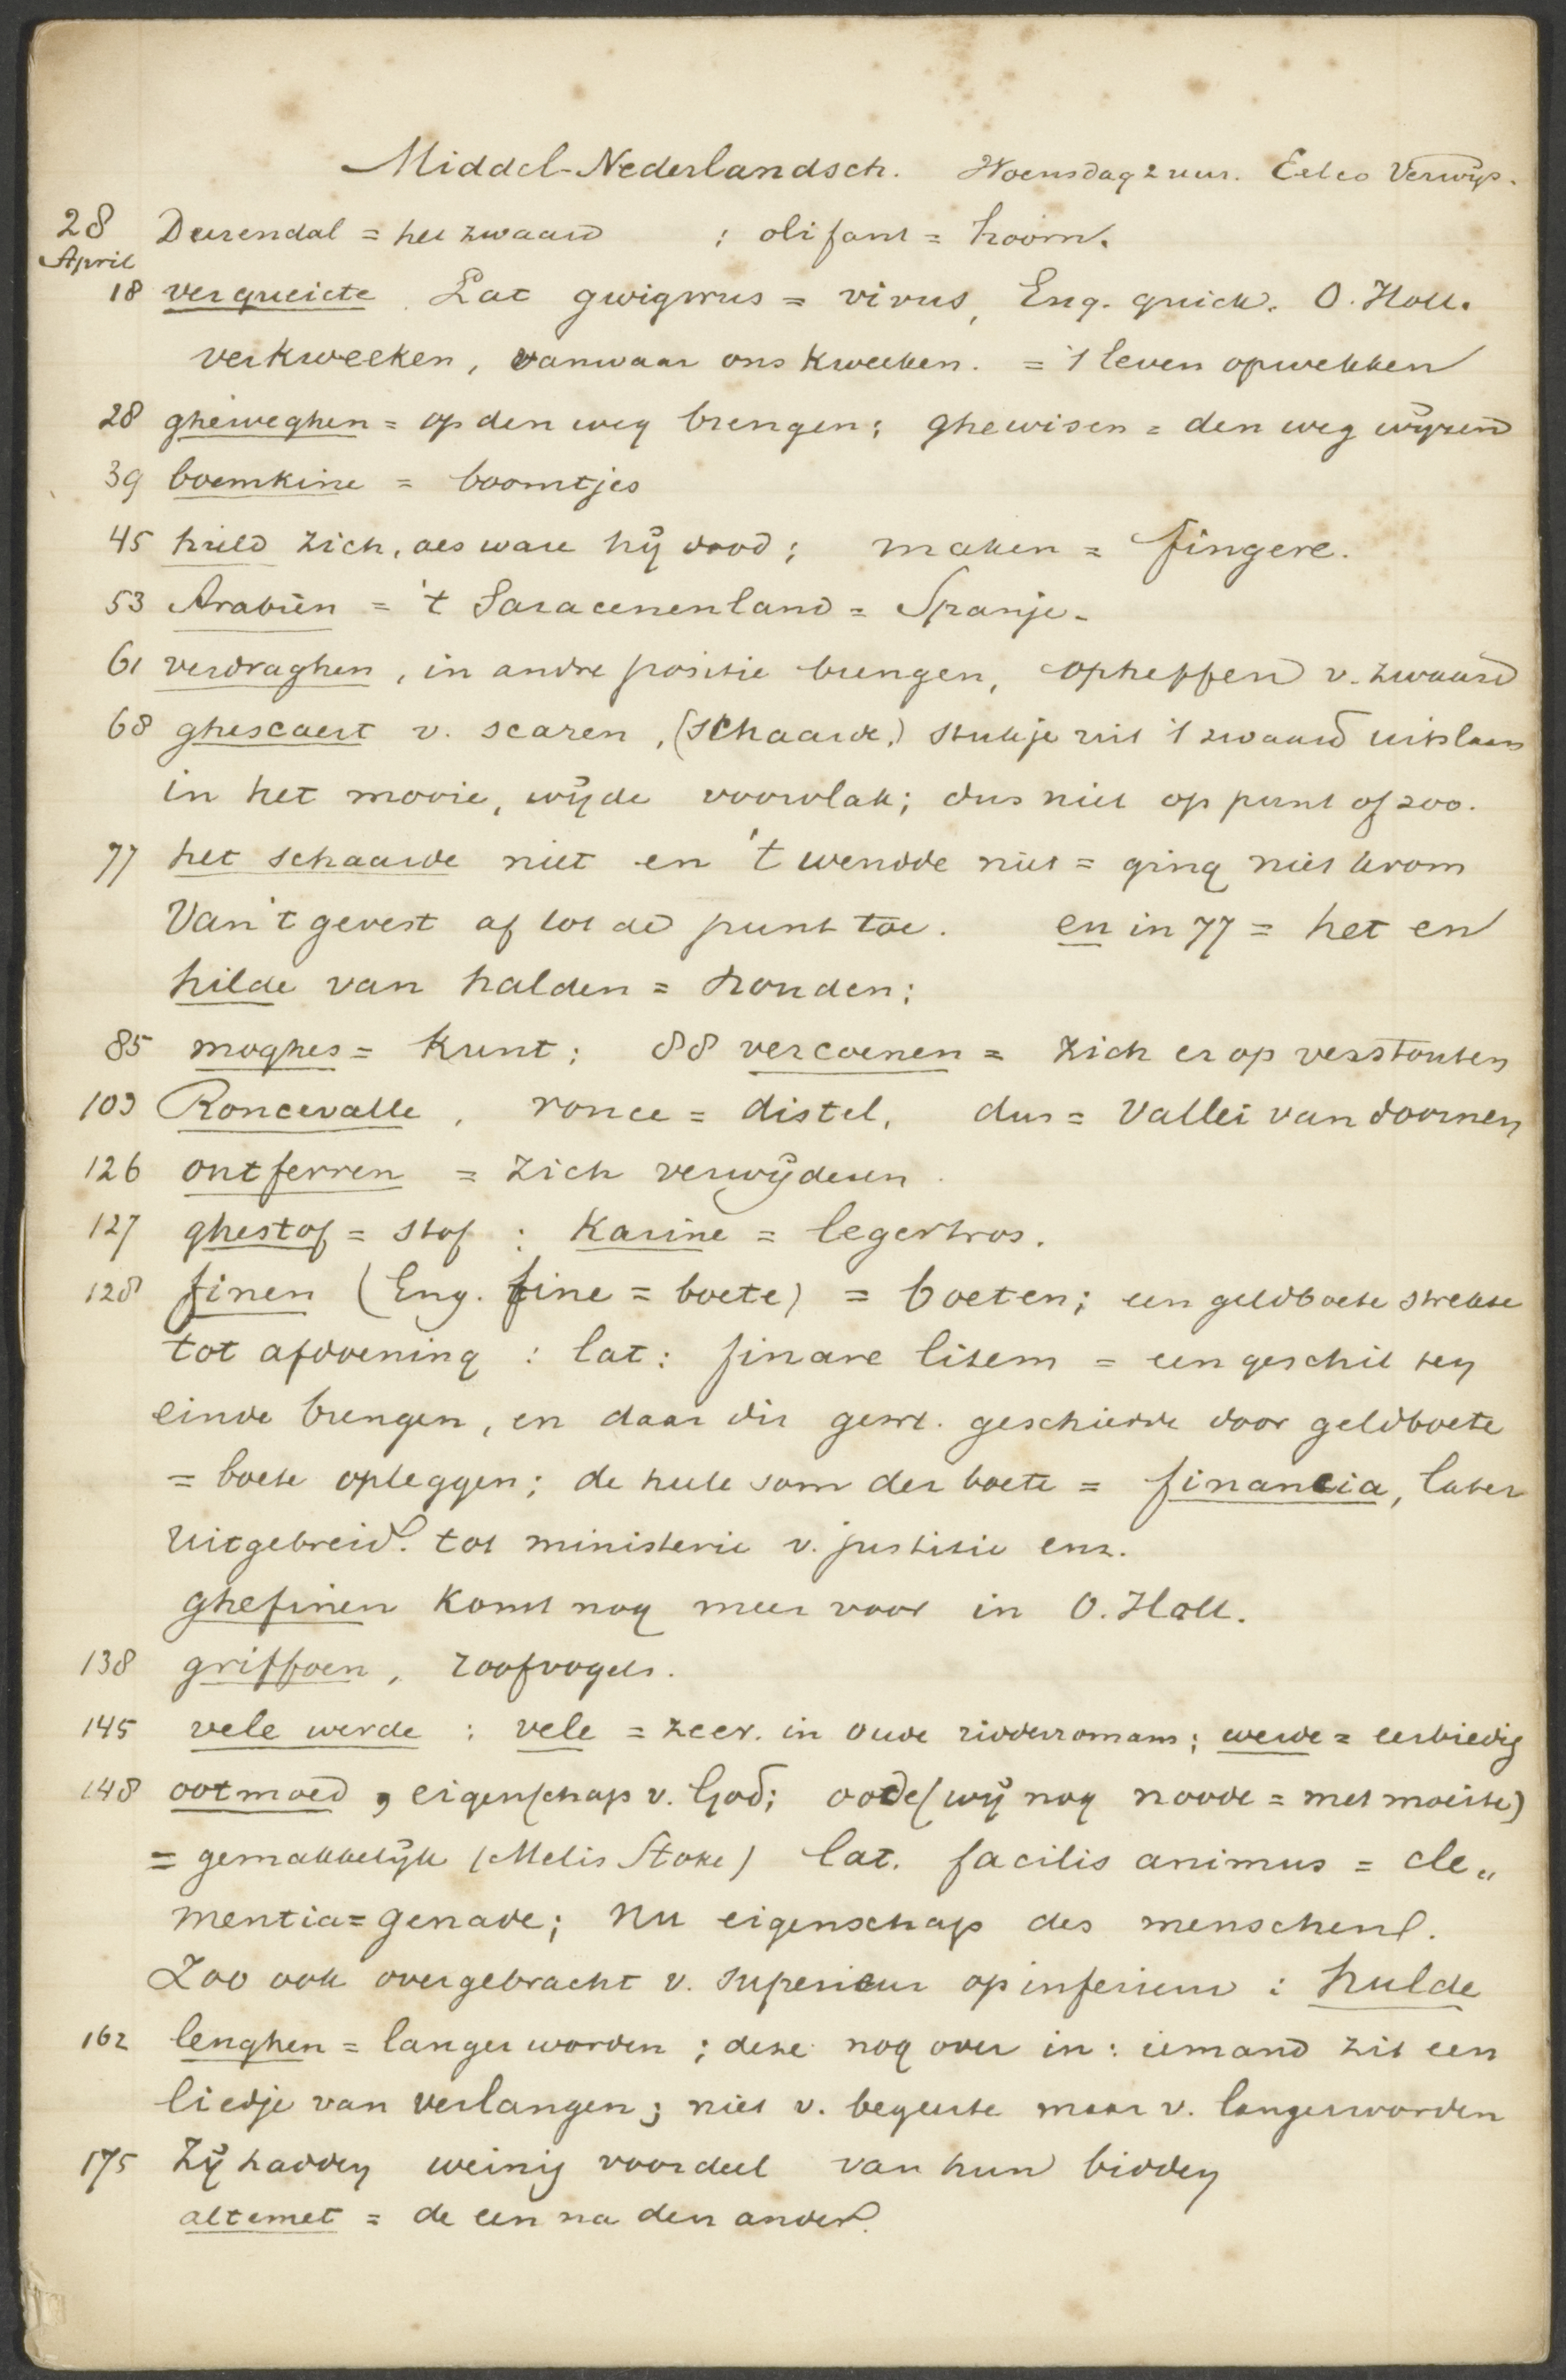 Middel-Nederlandsch. Woensdag 2 uur. Eelco Verwijs.
28 April Durendal = het zwaard ; olifant = hoorn.
18 verqueicte. Lat gwigwus = vivus, Eng. quick. O. Holl.
verkweeken, vanwaar ons kweeken. = 't leven opwekken
28 gheweghen = op den weg brengen; ghewisen = den weg wijzen
39 boemkine = boomtjes
45 hield zich, als ware hij dood; maken = fingere.
53 Arabiën = 't Saracenenland = Spanje.
61 verdraghen, in andre positie brengen, opheffen v. zwaard
68 ghescaert v. scaren, (schaarde,) stukje uit 't zwaard uitslaan
in het mooie, wijde voorvlak; dus niet op punt of zoo.
77 het schaarde niet en 't wendde niet = ging niet krom
Van 't gevest af tot de punt toe. en in 77 = het en
hilde van halden = houden;
85 moghes = kunt; 88 vercoenen = zich er op verstouten
103 Roncevalle, ronce = distel, dus = Vallei van doornen
126 ontferren = zich verwijderen.
127 ghestof = stof : Karine = legertros.
128 finen (Eng. fine = boete) = boeten; een geldboete strekte
tot afdoening : lat: finare litem = een geschil ten
einde brengen, en daar dit gew. geschiedde door geldboete
= boete opleggen; de heele som der boete = financia, later
uitgebreid. tot ministerie v. justitie enz.
ghefinen komt nog meer voor in O. Holl.
138 griffoen, roofvogels.
145 vele werde : vele = zeer. in oude ridderromans; werde = eerbiedig
148 ootmoed, eigenschap v. God; oode (wij nog noode = met moeite)
= gemakkelijk (Melis Stoke) lat. facilis animus = cle„
mentia = genade; nu eigenschap des menschen.
Zoo ook overgebracht v. superieur op inferieur : hulde
162 lenghen = langer worden; deze nog over in: iemand zit een
liedje van verlangen; niet v. begeerte maar v. langerworden
175 Zij hadden weinig voordeel van hun bidden
altemet = de een na den ander.